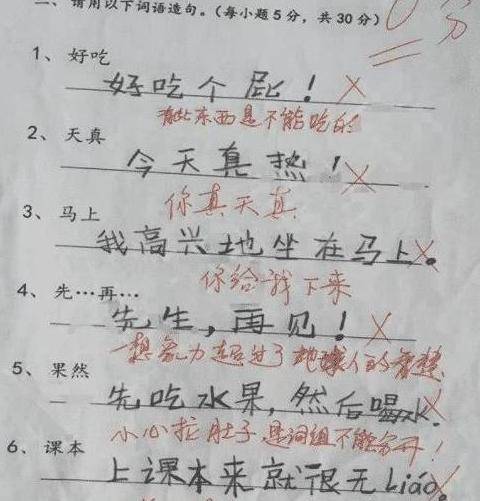 二、请用以下词语造句。（每小题5分，共30分） 0分
1、好吃
好吃个屁！
有些东西是不能吃的
2、天真
今天真热！
你真天真
3、马上
我高兴地坐在马上。
你给我下来
4、先…再…
先生，再见！
想象力超过了地球人的智慧
5、果然
先吃水果，然后喝水。
小心拉肚子 是词组不能分开！
6、课本
上课本来就很无liáo。